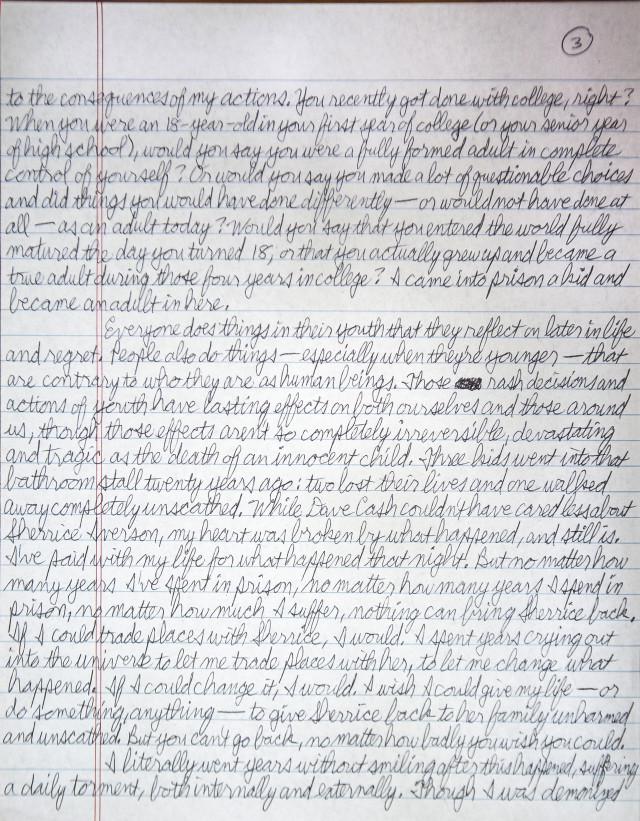 3
to the consequences of my actions. You recently got done with college, right?
When you were an 18-year-old in your first year of college (or your senior year
of high school), would you say you were a fully formed adult in complete
control of yourself? Or would you say you made a lot of questionable choices
and did things you would have done differently — or would not have done at
all — as an adult today? Would you say that you entered the world fully
matured the day you turned 18, or that you actually grew up and became a
true adult during those four years in college? I came into prison a kid and
became an adult in here.
Everyone does things in their youth that they reflect on later in life
and regret. People also do things — especially when they're younger — that
are contrary to who they are as human beings. Those rash decisions and
actions of youth have lasting effects on both ourselves and those around
us, though those effects aren't so completely irreversible, devastating
and tragic as the death of an innocent child. Three kids went into that
bathroom stall twenty years ago: two lost their lives and one walked
away completely unscathed. While Dave Cash couldn't have cared less about
Sherrice Iverson, my heart was broken by what happened, and still is.
I've paid with my life for what happened that night. But no matter how
many years I've spent in prison, no matter how many years I spend in
prison, no matter how much I suffer, nothing can bring Sherrice back.
If I could trade places with Sherrice, I would. I spent years crying out
into the universe to let me trade places with her, to let me change what
happened. If I could change it, I would. I wish I could give my life — or
do something, anything — to give Sherrice back to her family unharmed
and unscathed. But you can't go back, no matter how badly you wish you could.
I literally went years without smiling after this happened, suffering
a daily torment, both internally and externally. Though I was demonized